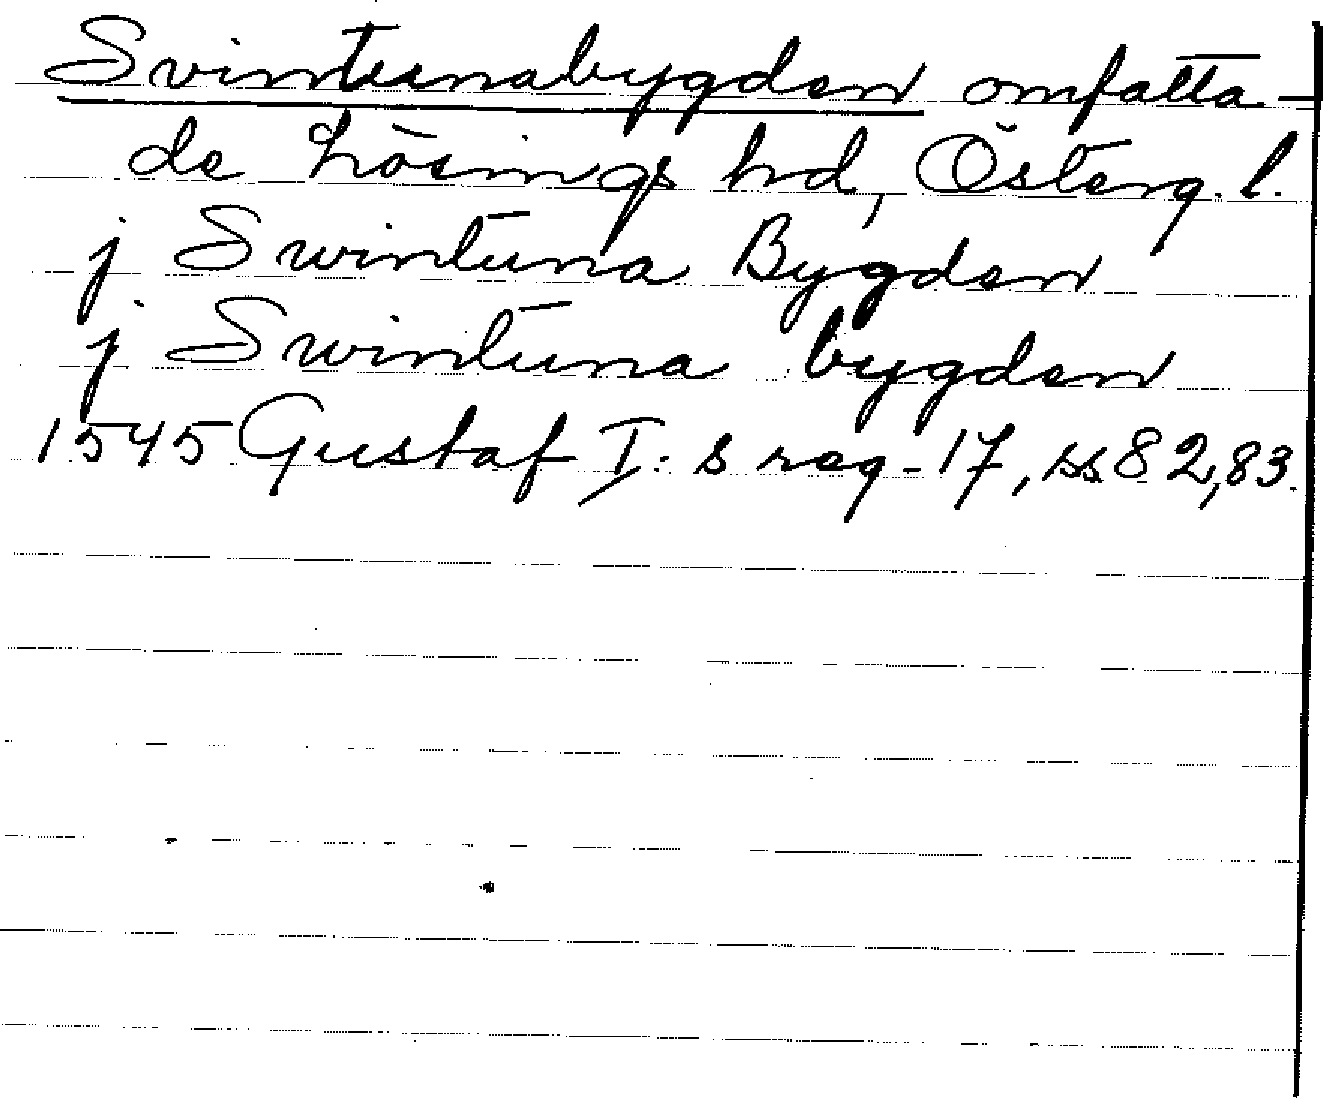 Svintunabygden omfatta-
de Lösings hrd, Österg. l.
j Swintuna Bygden
j Swintuna bygden
1545 Gustaf I: s reg. 17, ss 82,83.